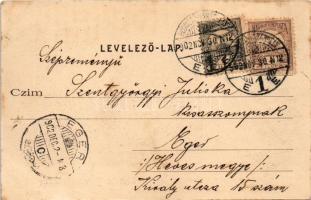 LEVELEZŐ-LAP
Szépreményű
Czim Szentgyörgyi Juliska
kisasszonynak
Eger
/:Heves megye:/
Király utcza 15 szám
EGER
902 DEC